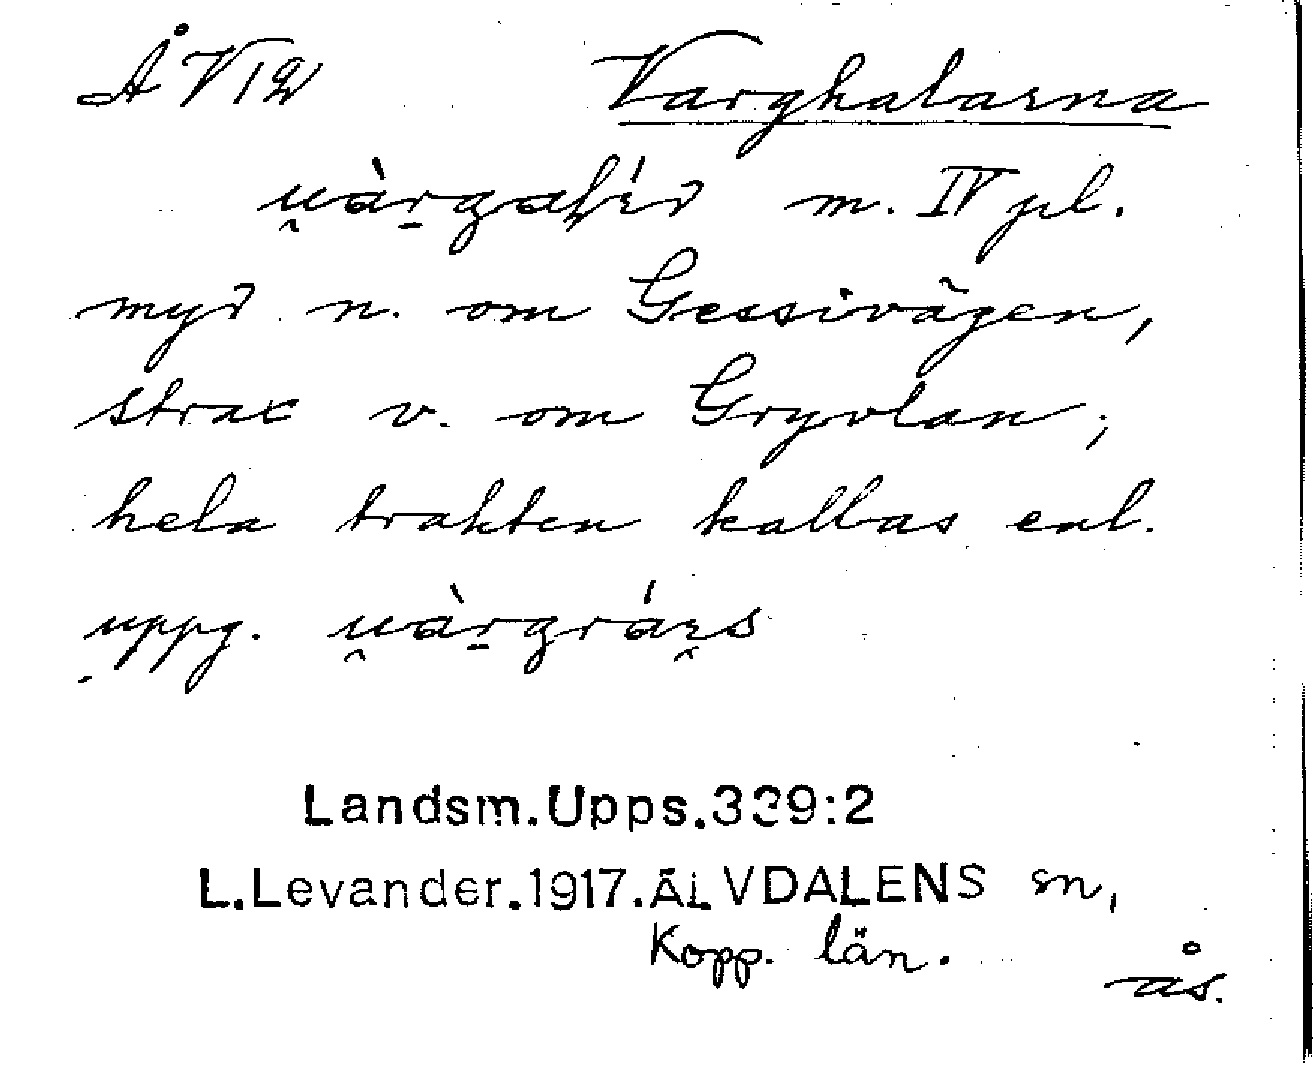 Å VIQ Varghalarna
m. IV pl.
myr n. om Gessivägen,
strax v. om Gryvlan;
hela trakten kallas enl.
uppg.
Landsm.Upps.339:2
L.Levander.1917.ÄLVDALENS sn,
Kopp. län.
ås.